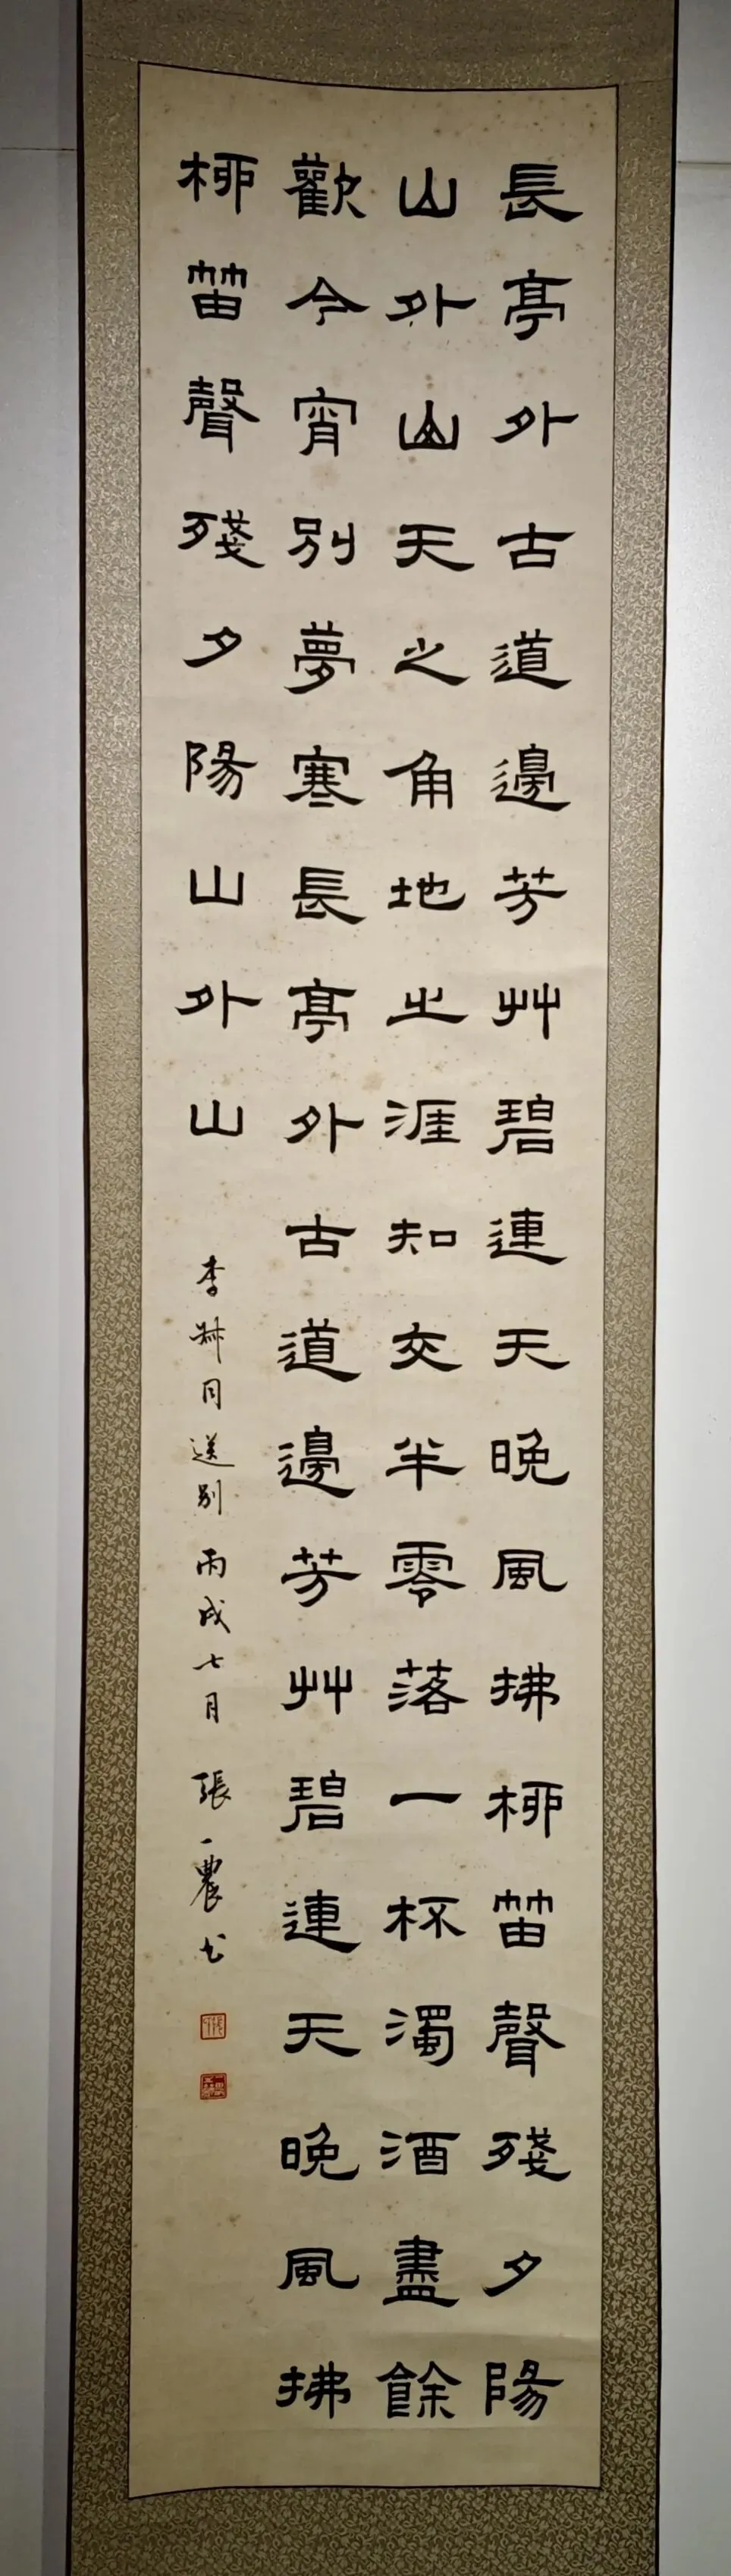 長亭外古道邊芳艸碧連天晚風拂柳笛聲殘夕陽
山外山天之角地之涯知交半零落一杯濁酒盡餘
歡今宵別夢寒長亭外古道邊芳艸碧連天晚風拂
柳笛聲殘夕陽山外山
李叔同送別 丙戌七月 張一農書